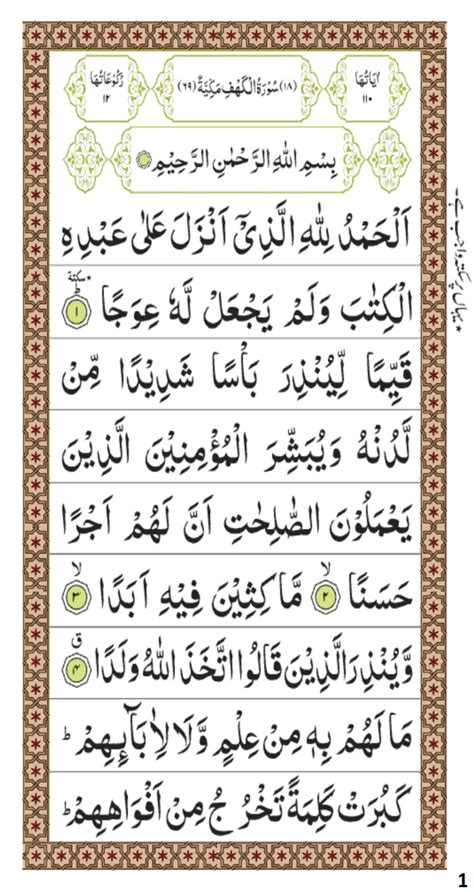 اٰيَاتُهَا ١١٠
(١٨) سُوْرَةُ الْكَهْفِ مَكِّيَّةٌ (٦٩)
رُكُوْعَاتُهَا ١٢
بِسْمِ اللّٰهِ الرَّحْمٰنِ الرَّحِيْمِ
اَلْحَمْدُ لِلّٰهِ الَّذِيْۤ اَنْزَلَ عَلٰى عَبْدِهِ
الْكِتٰبَ وَلَمْ يَجْعَلْ لَّهٗ عِوَجًا ١ ٭سكتة
قَيِّمًا لِّيُنْذِرَ بَاْسًا شَدِيْدًا مِّنْ
لَّدُنْهُ وَيُبَشِّرَ الْمُؤْمِنِيْنَ الَّذِيْنَ
يَعْمَلُوْنَ الصّٰلِحٰتِ اَنَّ لَهُمْ اَجْرًا
حَسَنًا ۙ ٢ مَّاكِثِيْنَ فِيْهِ اَبَدًا ۙ ٣
وَّيُنْذِرَ الَّذِيْنَ قَالُوا اتَّخَذَ اللّٰهُ وَلَدًا ق ٤
مَا لَهُمْ بِهٖ مِنْ عِلْمٍ وَّلَا لِاٰبَآىِٕهِمْ ؕ
كَبُرَتْ كَلِمَةً تَخْرُجُ مِنْ اَفْوَاهِهِمْ ؕ
٭ یہاں پر سکتہ واجب ہے۔
1